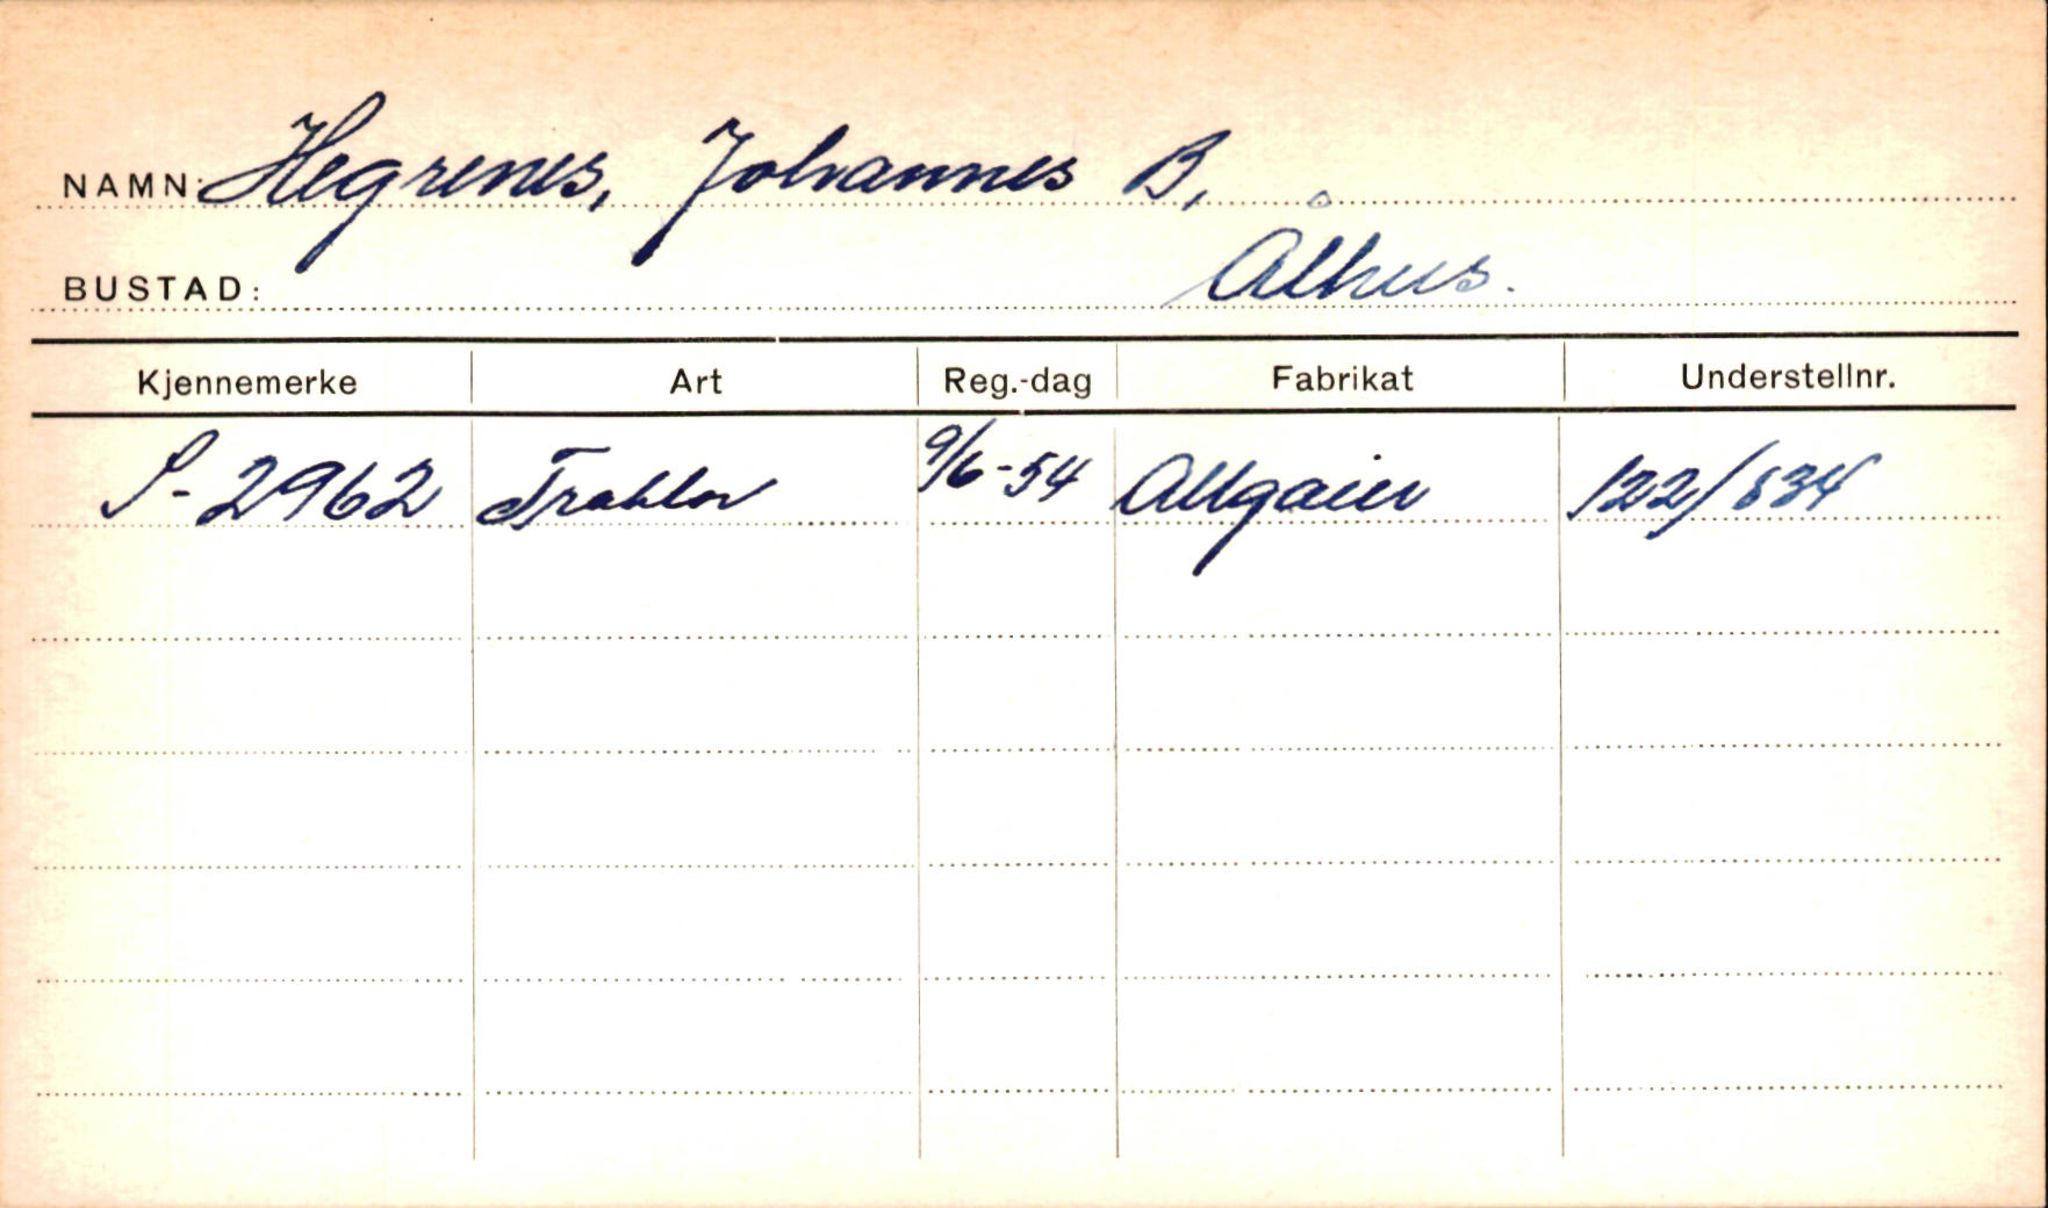 NAMN: Hegrenes, Johannes B,
BUSTAD: Ålhus.
Kjennemerke Art Reg.-dag Fabrikat Understellnr.
S-2962 Traktor 9/6-54 Allgaier 122/834